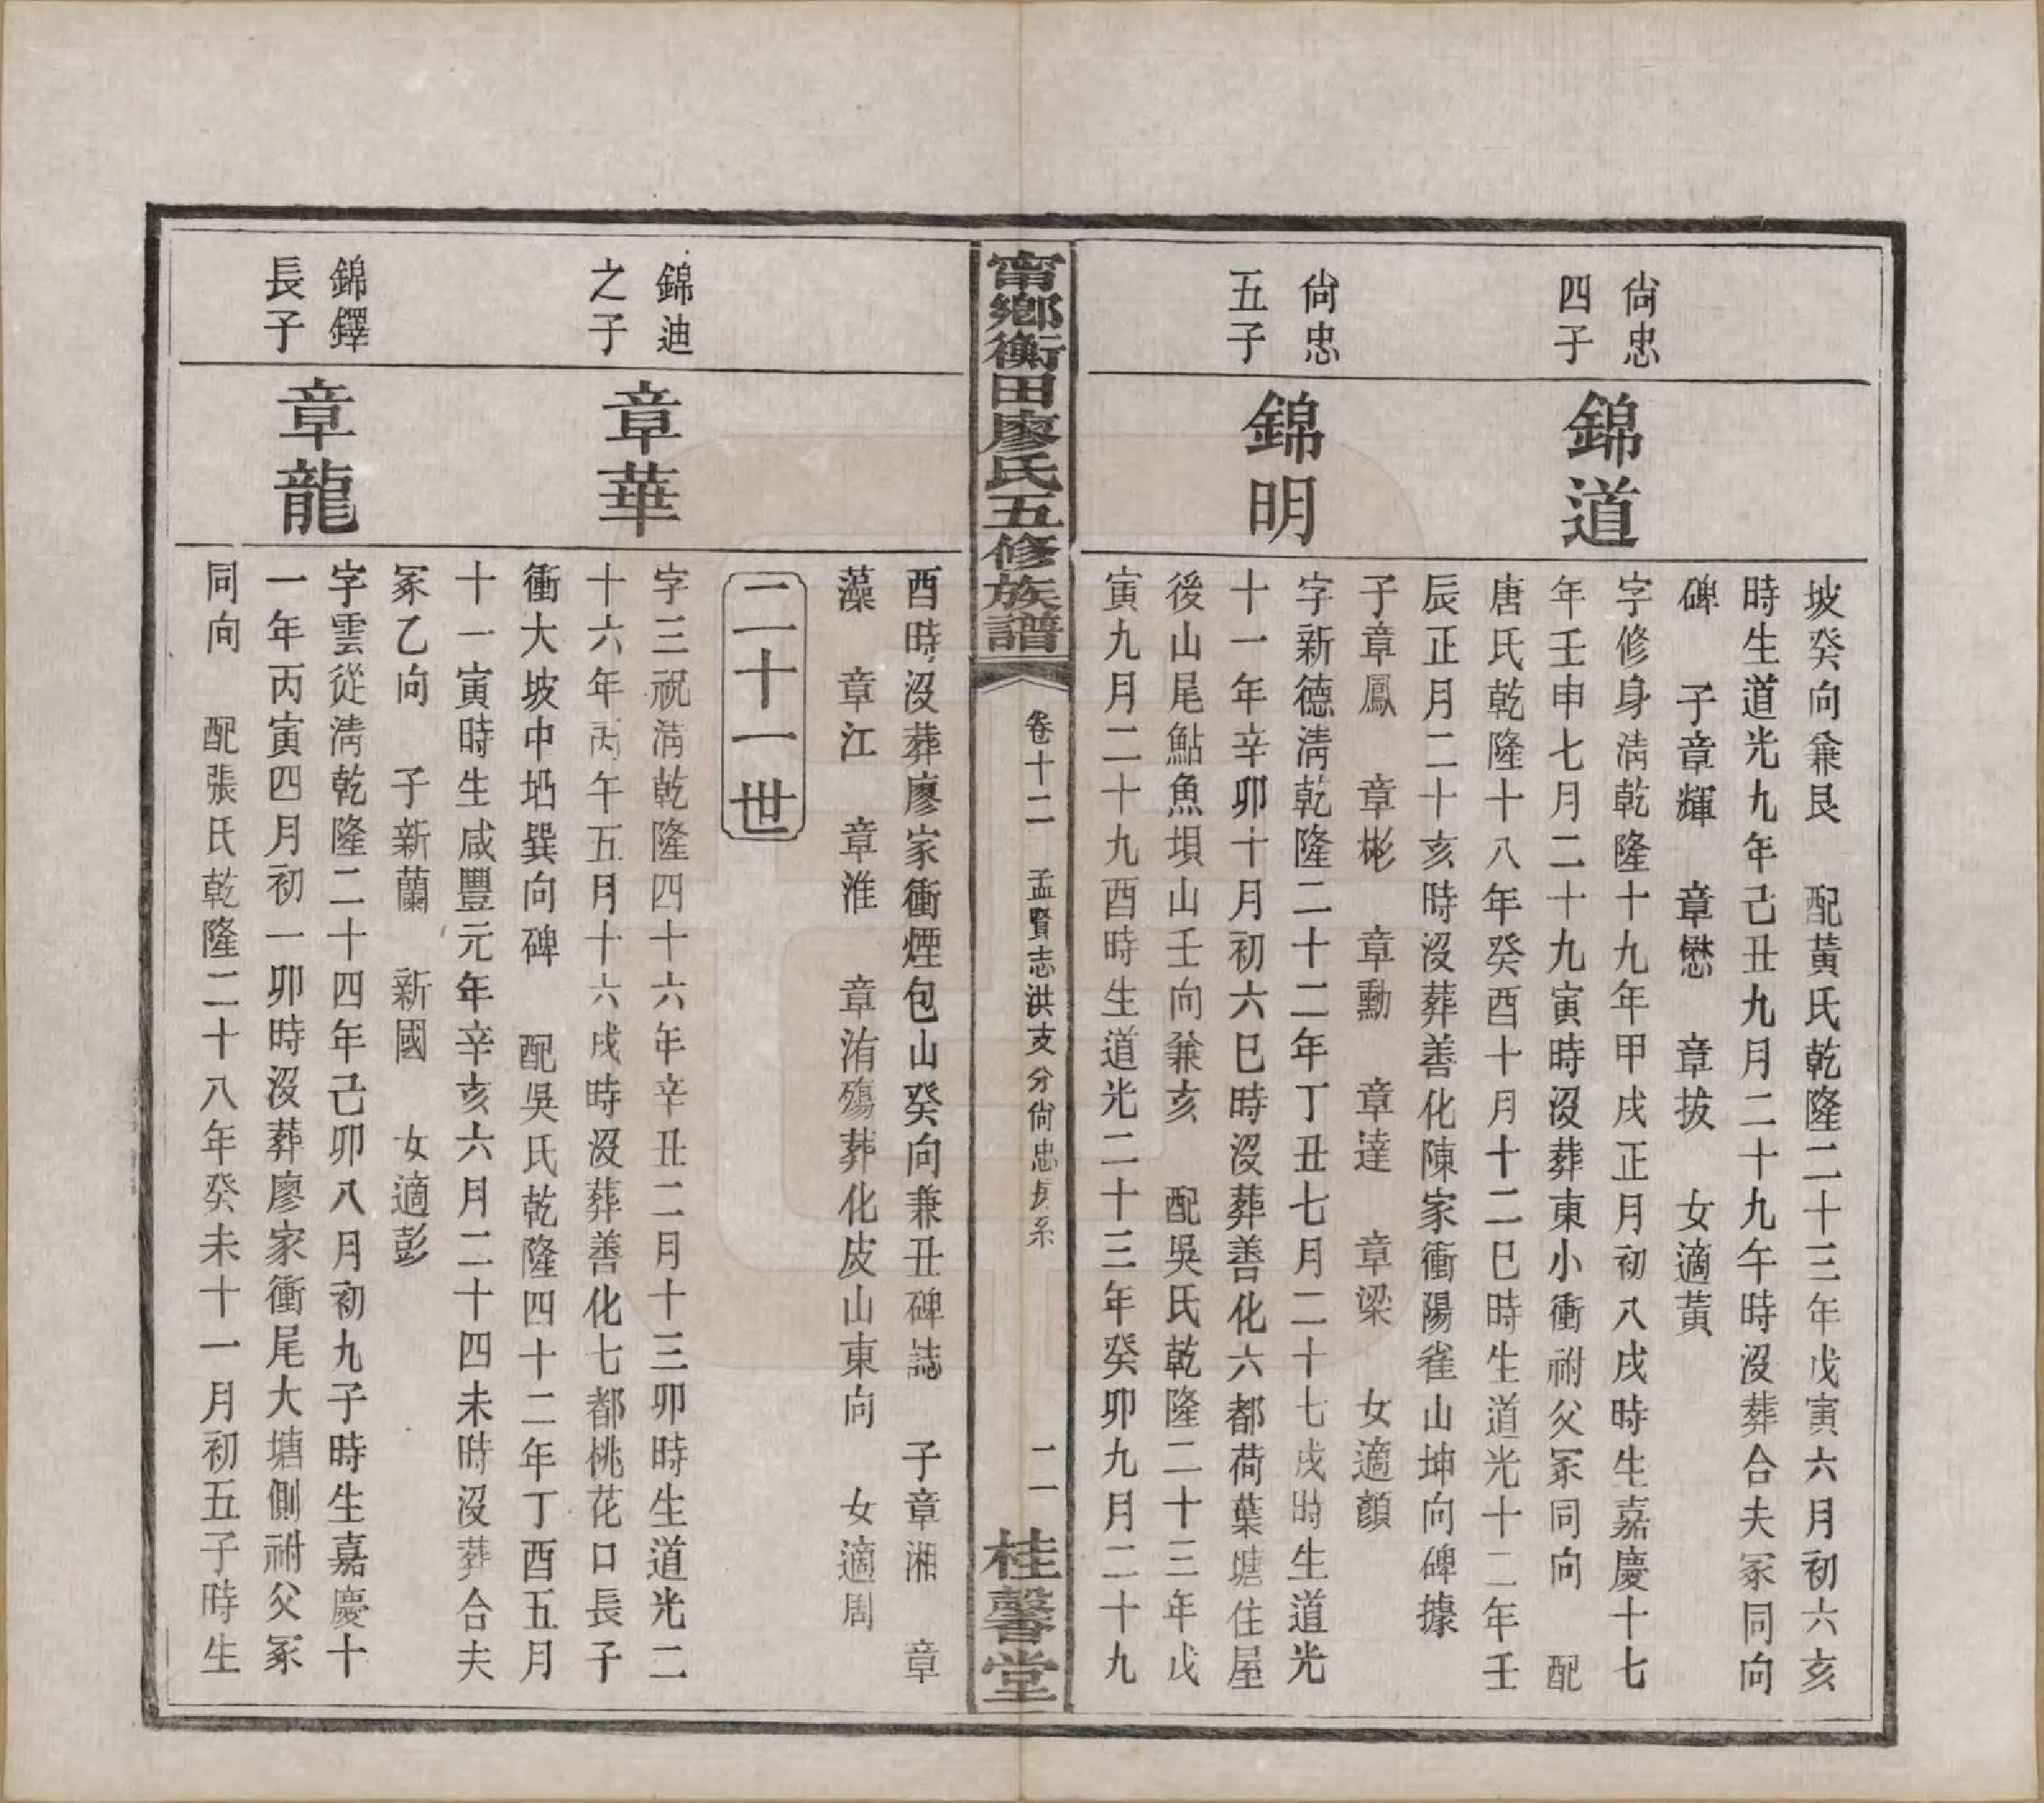 坡癸向兼艮　配黃氏乾隆二十三年戊寅六月初六亥
時生道光九年己丑九月二十九午時沒葬合夫冢同向
碑　子章輝　章懋　章拔　女適黃
尙忠
四子
錦道
字修身淸乾隆十九年甲戌正月初八戌時生嘉慶十七
年壬申七月二十九寅時沒葬東小衝祔父冢同向　配
唐氏乾隆十八年癸酉十月十二巳時生道光十二年壬
辰正月二十亥時沒葬善化陳家衝陽雀山坤向碑據
子章鳳　章彬　章勳　章達　章梁　女適顏
尙忠
五子
錦明
字新德淸乾隆二十二年丁丑七月二十七戌時生道光
十一年辛卯十月初六巳時沒葬善化六都荷葉塘住屋
後山尾鮎魚垻山壬向兼亥　配吳氏乾隆二十三年戊
寅九月二十九酉時生道光二十三年癸卯九月二十九
甯鄉衡田廖氏五修族譜
卷十二　孟賢志洪支分尙忠房系
二
桂馨堂
酉時沒葬廖家衝煙包山癸向兼丑碑誌　子章湘　章
藻　章江　章淮　章洧殤葬化皮山東向　女適周
二十一世
錦迪
之子
章華
字三祝淸乾隆四十六年辛丑二月十三卯時生道光二
十六年丙午五月十六戌時沒葬善化七都桃花口長子
衝大坡中垇巽向碑　配吳氏乾隆四十二年丁酉五月
十一寅時生咸豐元年辛亥六月二十四未時沒葬合夫
冢乙向　子新蘭　新國　女適彭
錦鐸
長子
章龍
字雲從淸乾隆二十四年己卯八月初九子時生嘉慶十
一年丙寅四月初一卯時沒葬廖家衝尾大塘側祔父冢
同向　配張氏乾隆二十八年癸未十一月初五子時生